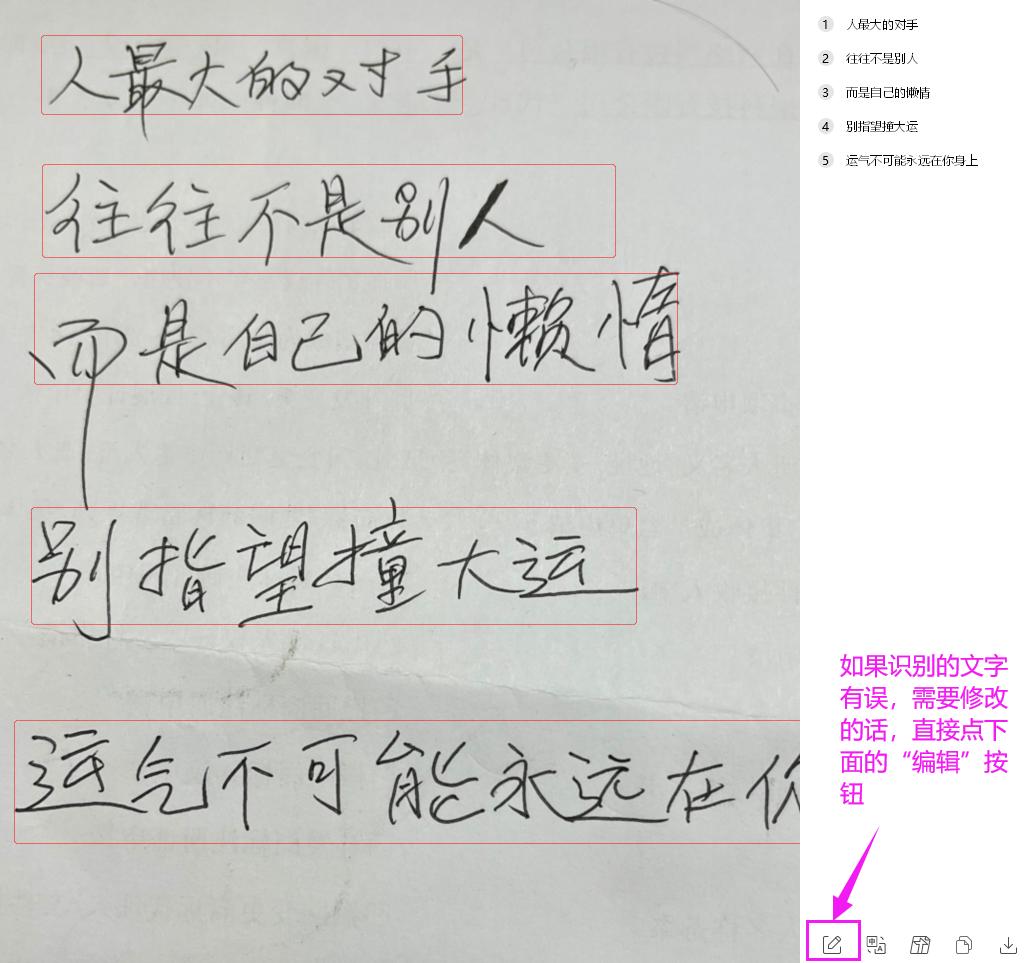 人最大的对手
往往不是别人
而是自己的懒惰
别指望撞大运
运气不可能永远在你
1 人最大的对手
2 往往不是别人
3 而是自己的懒惰
4 别指望撞大运
5 运气不可能永远在你身上
如果识别的文字
有误，需要修改
的话，直接点下
面的“编辑”按
钮